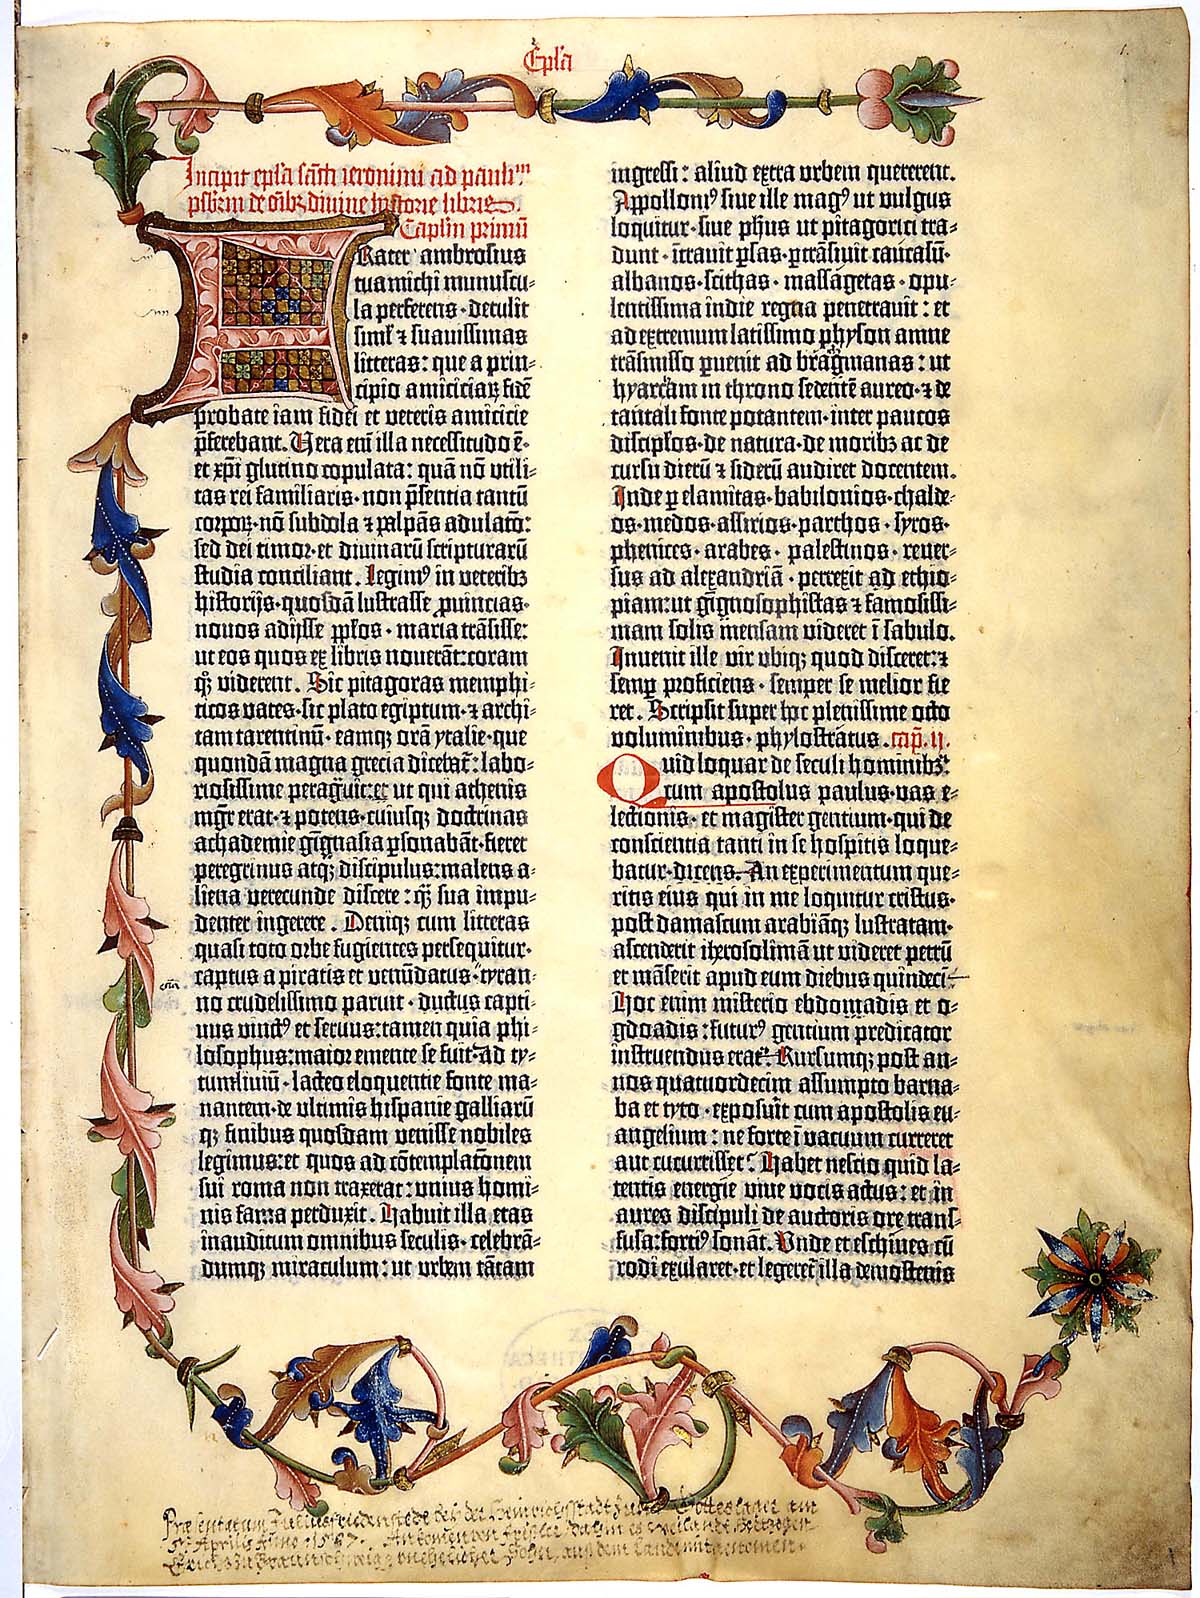 Epl̅a
Incipit epl̅a sanc̅ti ieronimi ad paulinuᵐ
presb̅rm de om̅ibꝫ diuine historie libris.
Capl̅m primū
FRater ambrosius
tua michi munuscu-
la perferens· detulit
siml̅ ⁊ suauissimas
litteras: que a prin-
cipio amiciciaꝝ fidē
probate iam fidei et veteris amicicie
p̄ferebant. Uera em̄ illa necessitudo ē·
et xp̄i glutino copulata: quā nō vtili-
tas rei familiaris· non p̄sentia tantū
corpoꝝ· nō subdola ⁊ palpās adulatō:
sed dei timor· et diuinarū scripturarū
studia conciliant. Legimꝰ in veteribꝫ
historijs· quosdā lustrasse ꝓuincias·
nouos adijsse pp̄los· maria trāsisse:
ut eos quos ex libris nouerāt: coram
qꝫ viderent. Sic pitagoras memphi-
ticos vates· sic plato egiptum· ⁊ archi-
tam tarentinū· eamqꝫ orā ytalie· que
quondā magna grecia dicebat̄: labo-
riosissime peragrauit: et ut qui athenis
mg̅r erat· ⁊ potens· cuiusqꝫ doctrinas
achademie gignasia ꝑsonabāt· fieret
peregrinus atqꝫ discipulus: malens a-
liena verecunde discere: qȝ sua impu-
denter ingerere. Deniqꝫ cum litteras
quasi toto orbe fugientes persequitur·
captus a piratis et venūdatus· tyran-
no crudelissimo paruit· ductus capti-
uus vinctꝰ et seruus: tamen quia phi-
losophus: maior emente se fuit· ad ty-
tumliuiū· lacteo eloquentie fonte ma-
nantem· de vltimis hispanie galliarū
qꝫ finibus quosdam venisse nobiles
legimus: et quos ad cōtemplatōnem
sui roma non traxerat: vnius homi-
nis fama perduxit. Habuit illa etas
inauditum omnibus seculis· celebrā-
dumqꝫ miraculum: ut vrbem tātam
ingressi: aliud extra vrbem quererent.
Appollonꝰ siue ille magꝰ ut vulgus
loquitur· siue ph̅us ut pitagorici tra-
dunt· ītrauit ꝑsas· ꝑtrāsiuit caucasū·
albanos· scithas· massagetas· opu-
lentissima indie regna penetrauit: et
ad extremum latissimo physon amne
trāsmisso ꝑuenit ad bragmanas: ut
hyarcam in throno sedentē aureo· ⁊ de
tantali fonte potantem· inter paucos
discipl̅os· de natura· de moribꝫ ac de
cursu dierū ⁊ siderū audiret docentem.
Inde ꝑ elamitas· babilonios· chalde-
os· medos· assirios· parthos· syros·
phenices· arabes· palestinos· reuer-
sus ad alexandriā· perrexit ad ethio-
piam: ut gignosophistas ⁊ famosissi-
mam solis mensam videret ī sabulo.
Inuenit ille vir vbiqꝫ quod disceret: ⁊
semꝑ proficiens· semper se melior fie
ret. Scripsit super hoc plenissime octo
voluminibus· phylostratus. cap̄. ii.
Quid loquar de seculi hominibꝫ:
cum apostolus paulus· vas e-
lectionis· et magister gentium· qui de
conscientia tanti in se hospitis loque-
batur· dicens. An experimentum que-
ritis eius qui in me loquitur cristus.
post damascum arabiāqꝫ lustratam·
ascenderit iherosolimā ut videret petrū
et māserit apud eum diebus quindeci̅
Hoc enim misterio ebdomadis et o-
gdoadis: futurꝰ gentium predicator
instruendus erat. Rursumqꝫ post an-
nos quatuordecim assumpto barna-
ba et tyto· exposuit cum apostolis eu-
angelium: ne forte ī vacuum curreret
aut cucurrisset. Habet nescio quid la-
tentis energie viue vocis actus: et in
aures discipuli de auctoris ore trans-
fusa: fortiꝰ sonāt. Unde et eschines cū
rodi exularet· et legeret̄ illa demostenis
Præsentatum Juliusfriedenstede beÿ der Heinrichsstadt
Aprilis Anno 1587.